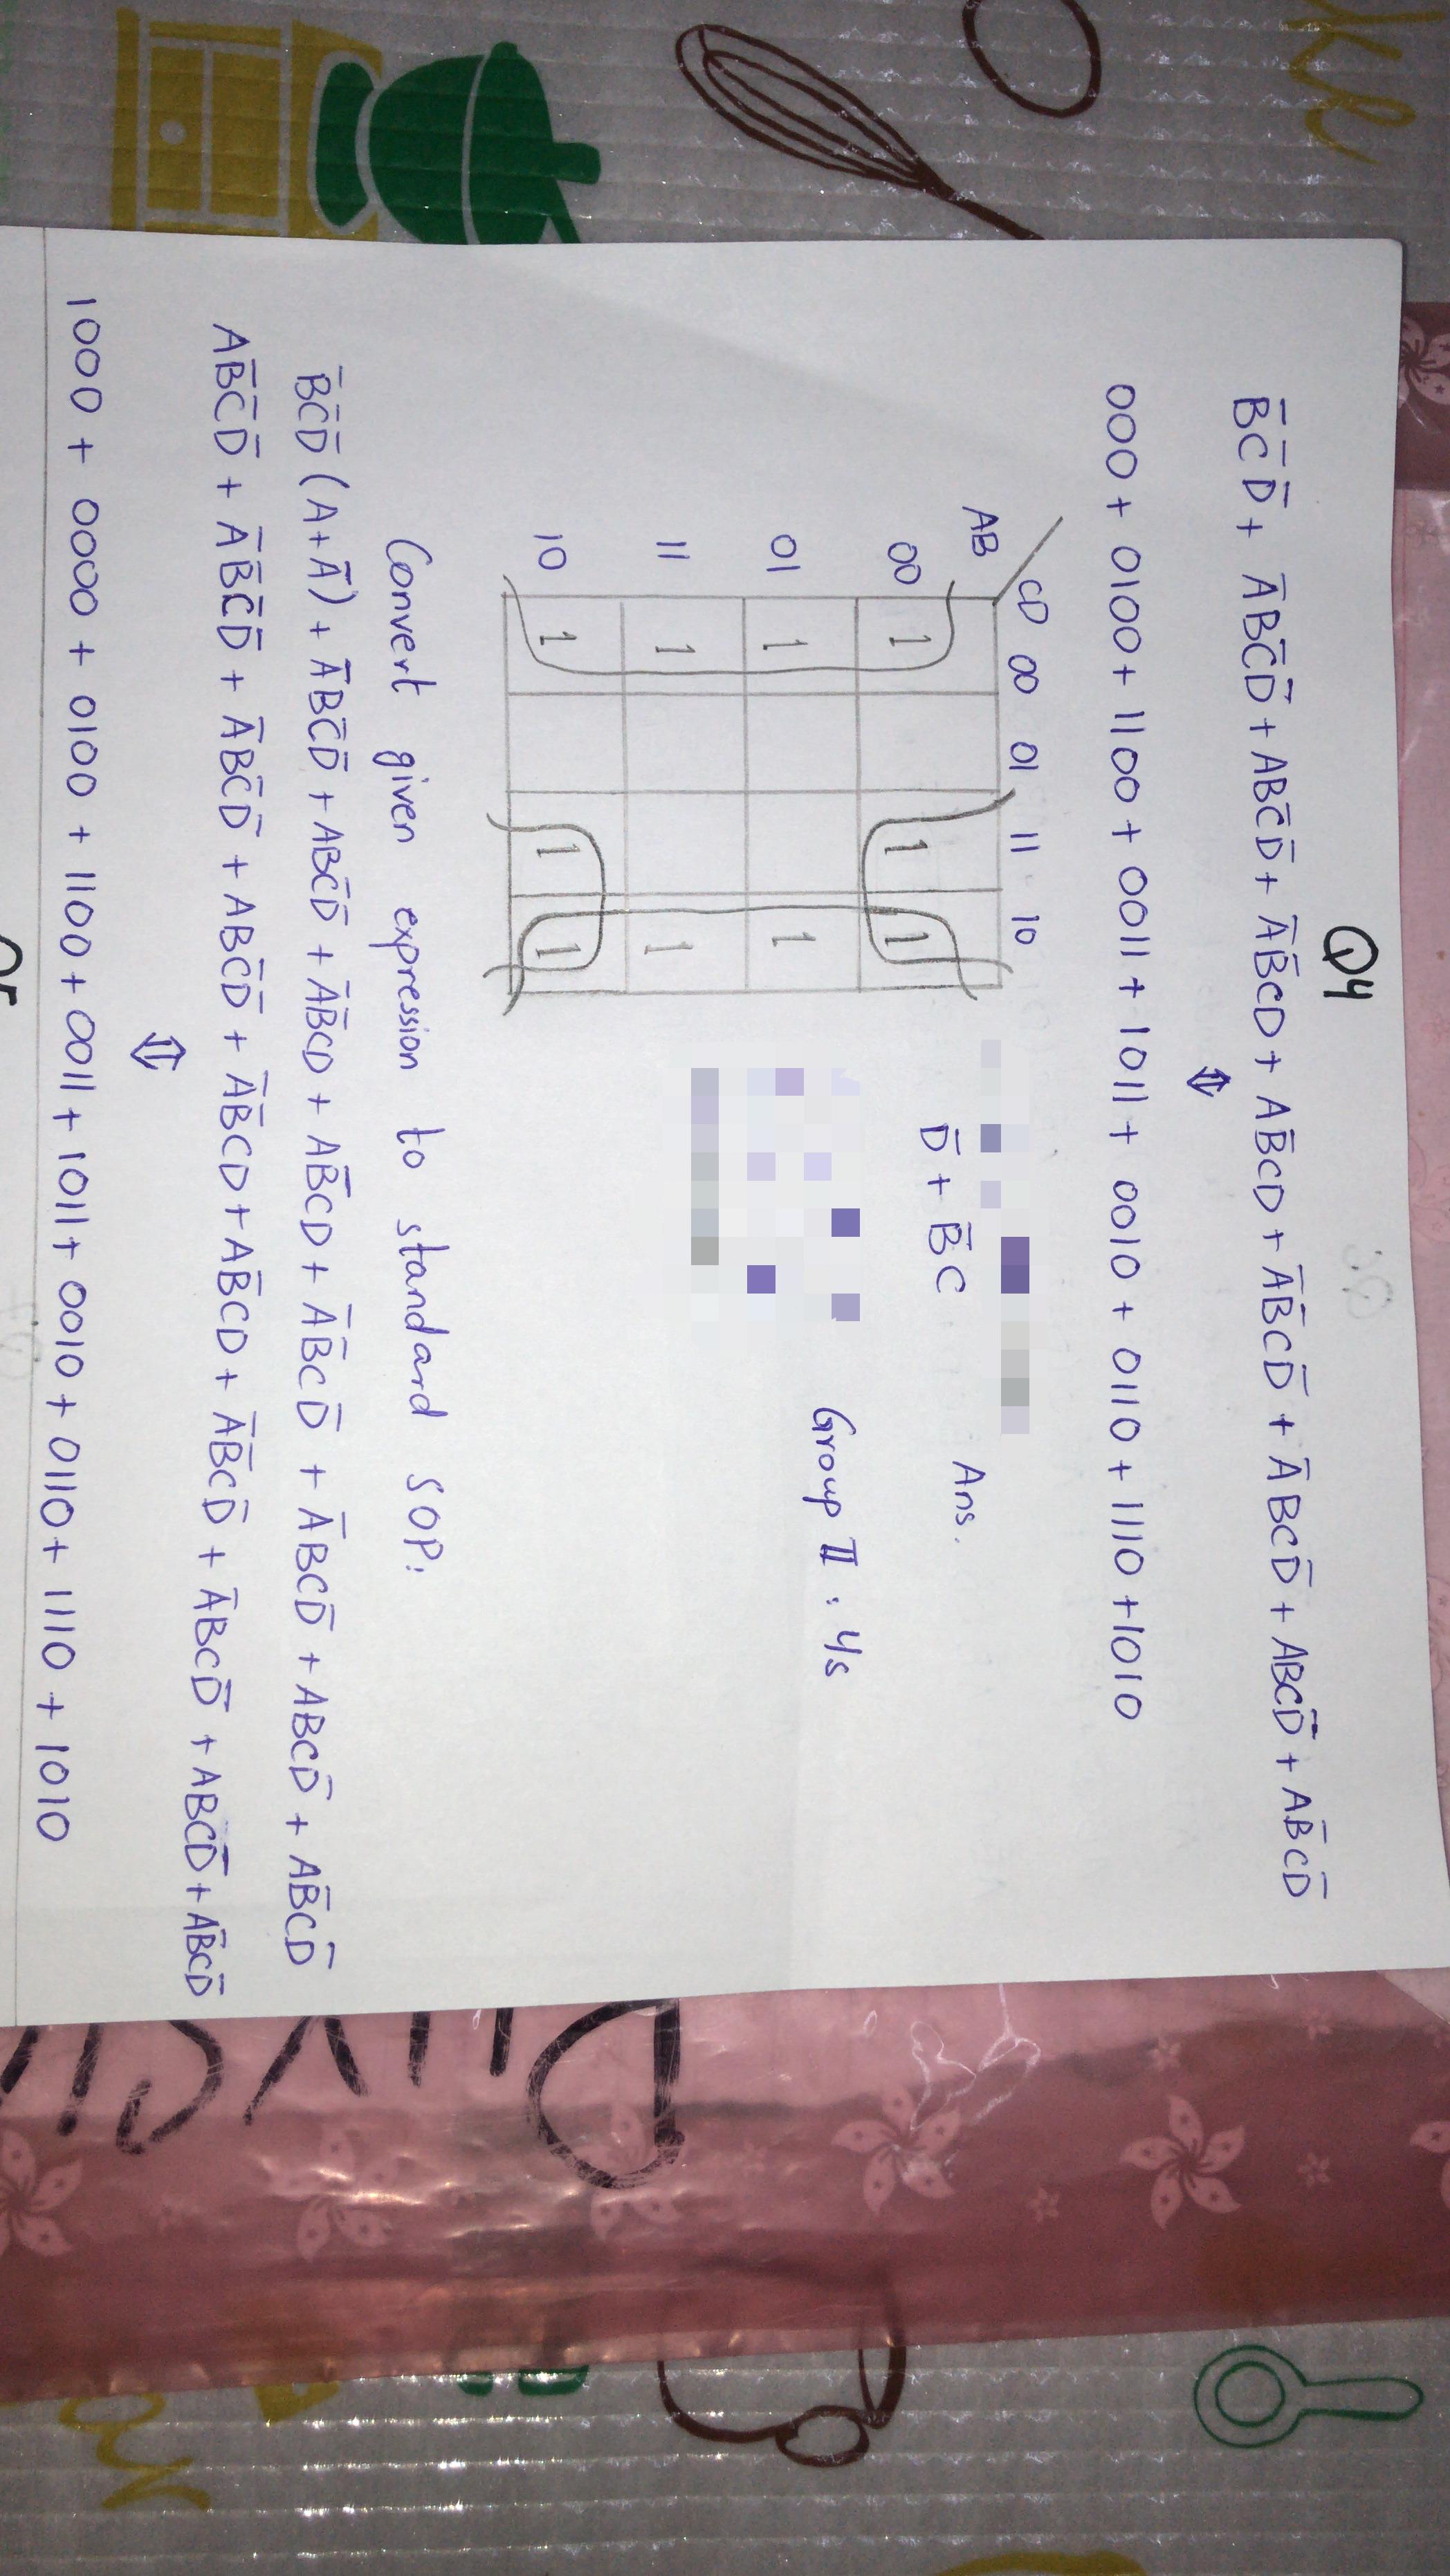 Q4
B̅C̅D̅ + A̅BC̅D̅ + ABC̅D̅ + A̅B̅CD + AB̅CD + A̅B̅CD̅ + A̅BCD̅ + ABCD̅ + AB̅CD̅
⇕
000 + 0100 + 1100 + 0011 + 1011 + 0010 + 0110 + 1110 + 1010
CD 00 01 11 10
AB
00 1 1 1
01 1 1
11 1 1
10 1 1 1
Ans.
D̅ + B̅C
Group II : 4s
Convert given expression to standard SOP:
B̅C̅D̅ (A+A̅) + A̅BC̅D̅ + ABC̅D̅ + A̅B̅CD + AB̅CD + A̅B̅CD̅ + A̅BCD̅ + ABCD̅ + AB̅CD̅
AB̅C̅D̅ + A̅B̅C̅D̅ + A̅BC̅D̅ + ABC̅D̅ + A̅B̅CD + AB̅CD + A̅B̅CD̅ + A̅BCD̅ + ABCD̅ + AB̅CD̅
⇕
1000 + 0000 + 0100 + 1100 + 0011 + 1011 + 0010 + 0110 + 1110 + 1010